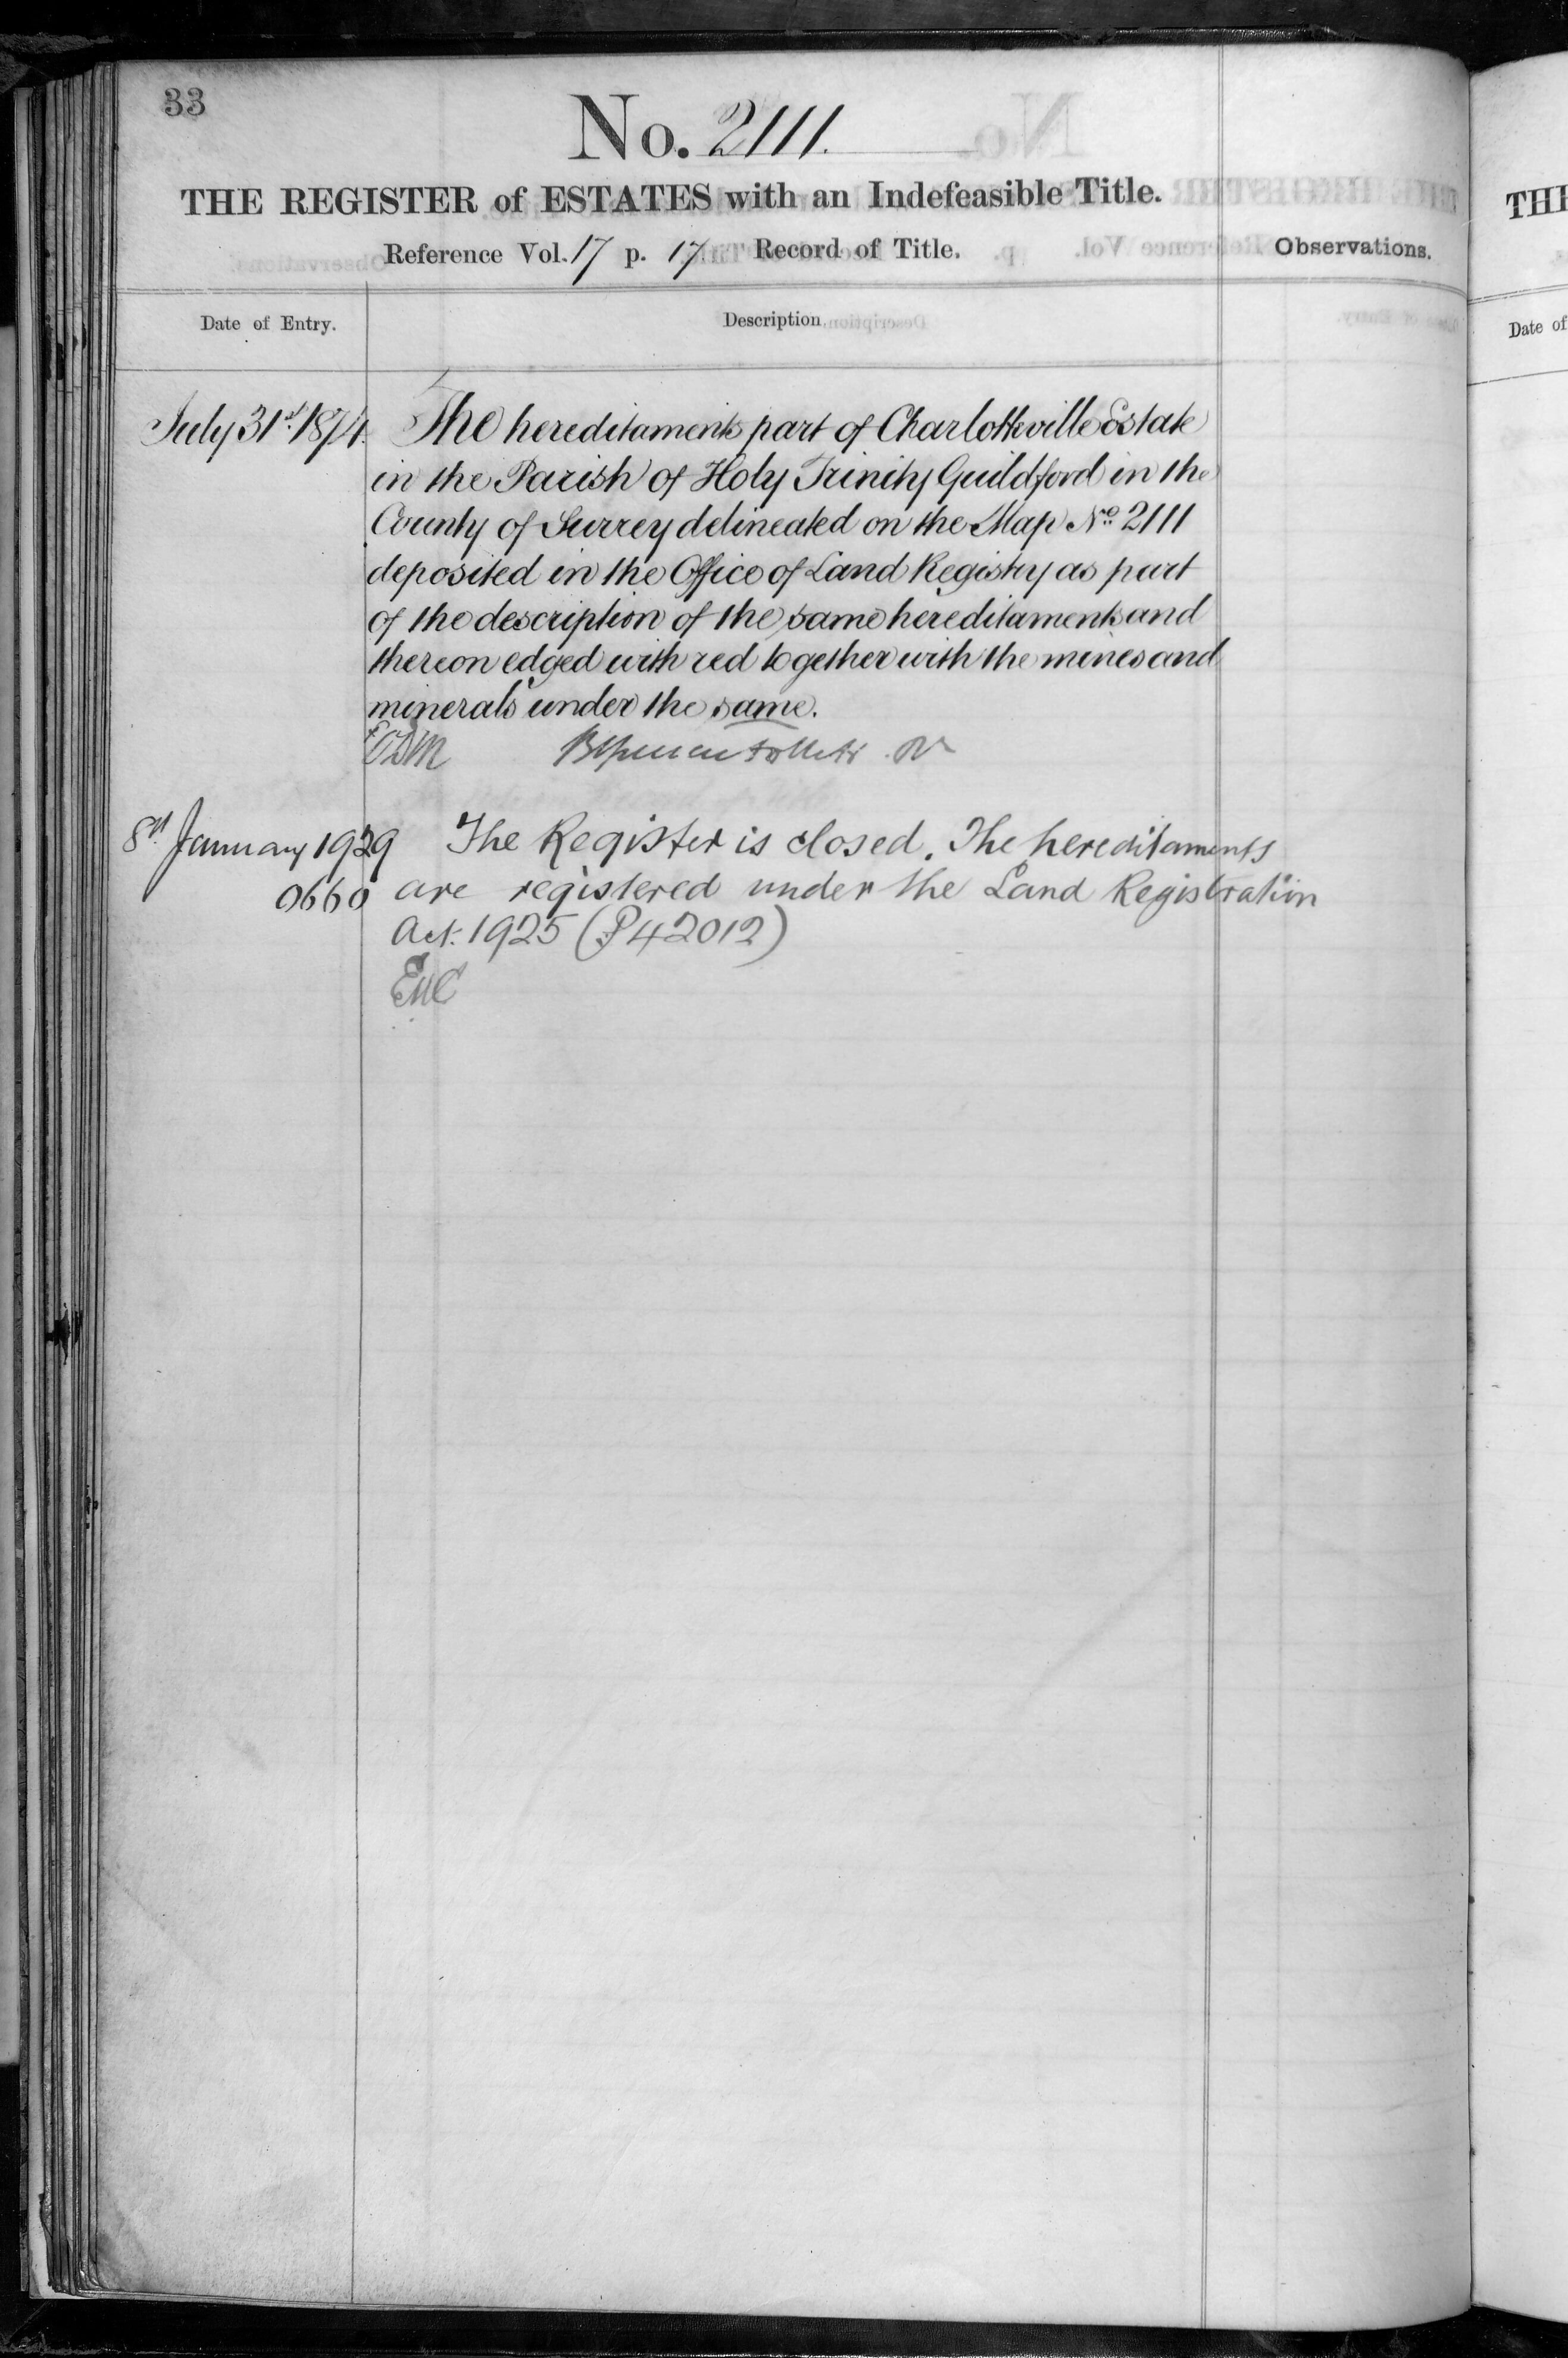 33
No. 2111.
THE REGISTER of ESTATES with an Indefeasible Title.
Reference Vol. 17 p. 17 Record of Title.
Observations.
Date of Entry.
Description.
July 31st 1874. The hereditaments part of Charlotteville Estate
in the Parish of Holy Trinity Guildford in the
County of Surrey delineated on the Map No. 2111
deposited in the Office of Land Registry as part
of the description of the same hereditaments and
thereon edged with red together with the mines and
minerals under the same.
8th January 1929 The Register is closed. The hereditaments
0660 are registered under the Land Registration
Act. 1925 (P42012)
EMC
THE
Date of